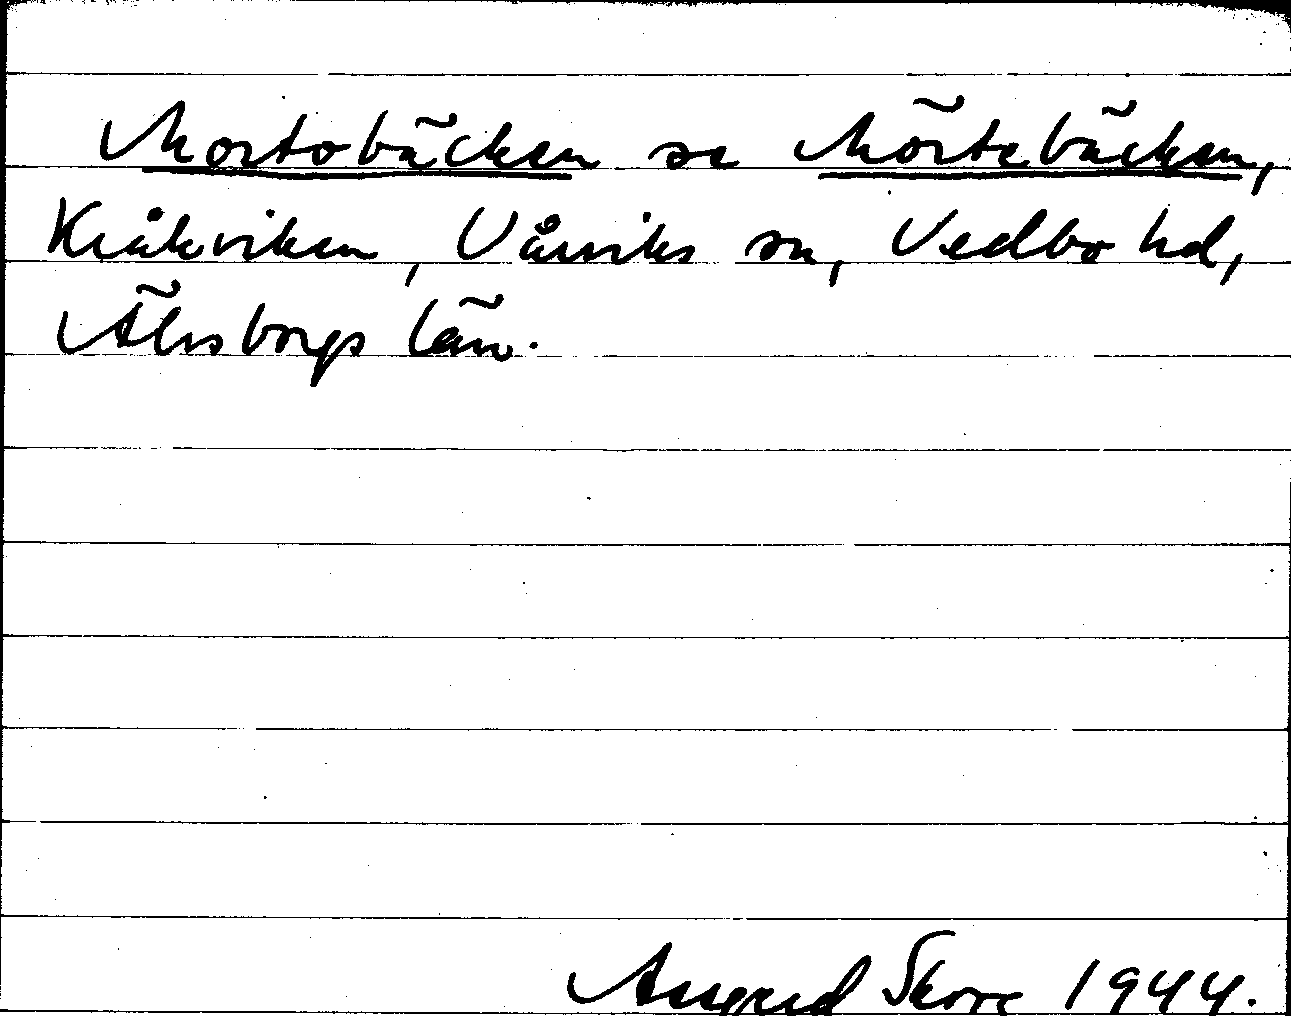 Mortobäcken se Mörtebäcken,
Kråkviken, Vårviks sn, Vedbo hd,
Älvsborgs län.
Assgerd Skove 1944.